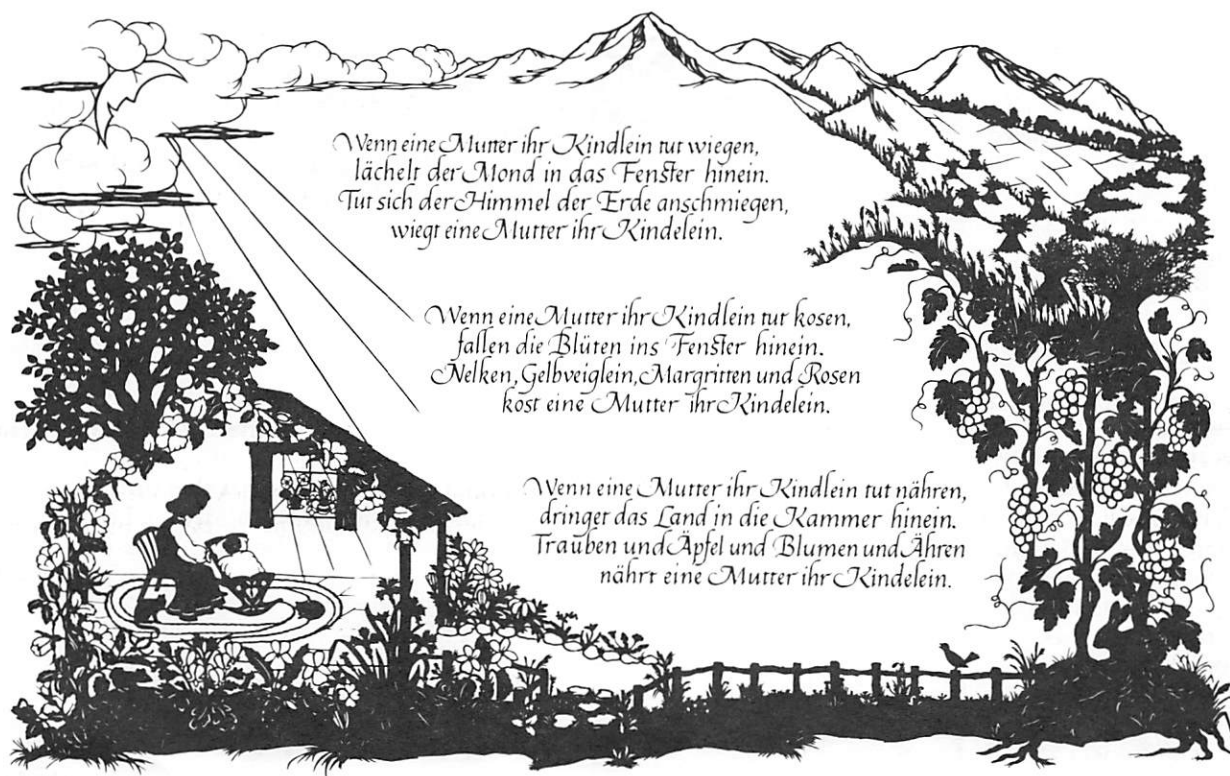 Wenn eine Mutter ihr Kindlein tut wiegen,
lächelt der Mond in das Fenster hinein.
Tut sich der Himmel der Erde anschmiegen,
wiegt eine Mutter ihr Kindelein.
Wenn eine Mutter ihr Kindlein tut kosen,
fallen die Blüten ins Fenster hinein.
Nelken, Gelbveiglein, Margritten und Rosen
kost eine Mutter ihr Kindelein.
Wenn eine Mutter ihr Kindlein tut nähren,
dringet das Land in die Kammer hinein.
Trauben und Äpfel und Blumen und Ähren
nährt eine Mutter ihr Kindelein.